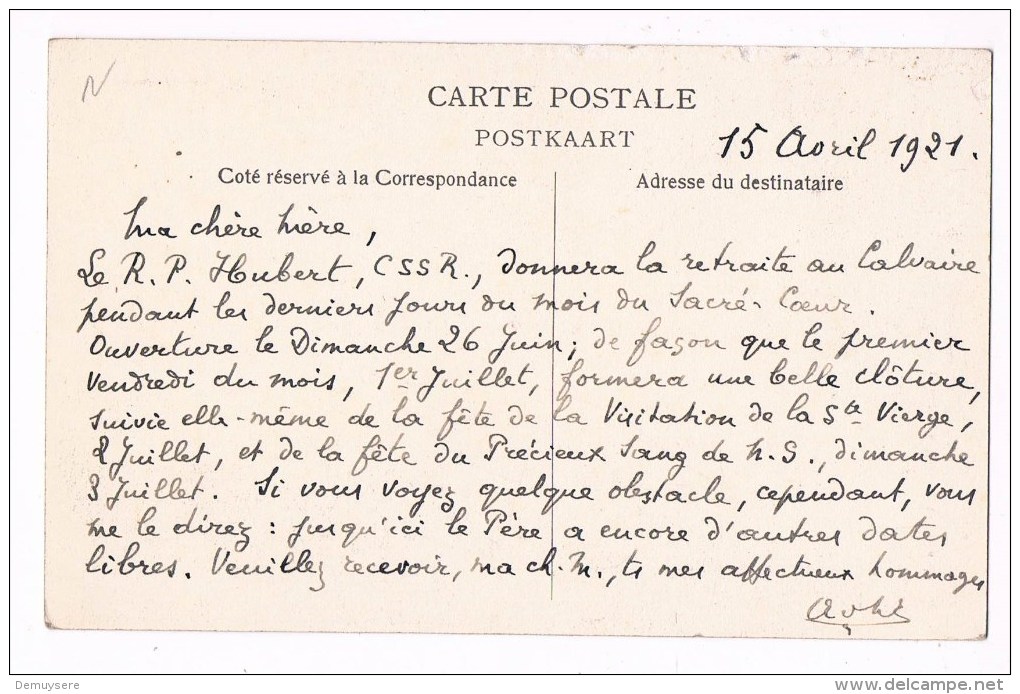 CARTE POSTALE
POSTKAART
15 Avril 1921.
Coté réservé à la Correspondance
Adresse du destinataire
Ma chère Mère,
Le R. P. Hubert, CSSR., donnera la retraite au Calvaire
pendant les derniers jours du mois du Sacré-Cœur.
Ouverture le Dimanche 26 Juin; de façon que le premier
Vendredi du mois, 1er Juillet, formera une belle clôture,
suivie elle-même de la fête de la Visitation de la Ste Vierge,
2 Juillet, et de la fête du Précieux Sang de N. S., dimanche
3 Juillet. Si vous voyez quelque obstacle, cependant, vous
me le direz: jusqu'ici le Père a encore d'autres dates
libres. Veuillez recevoir, ma ch. M., ts mes affectueux hommages
Demuysere
http://www.delcampe.net